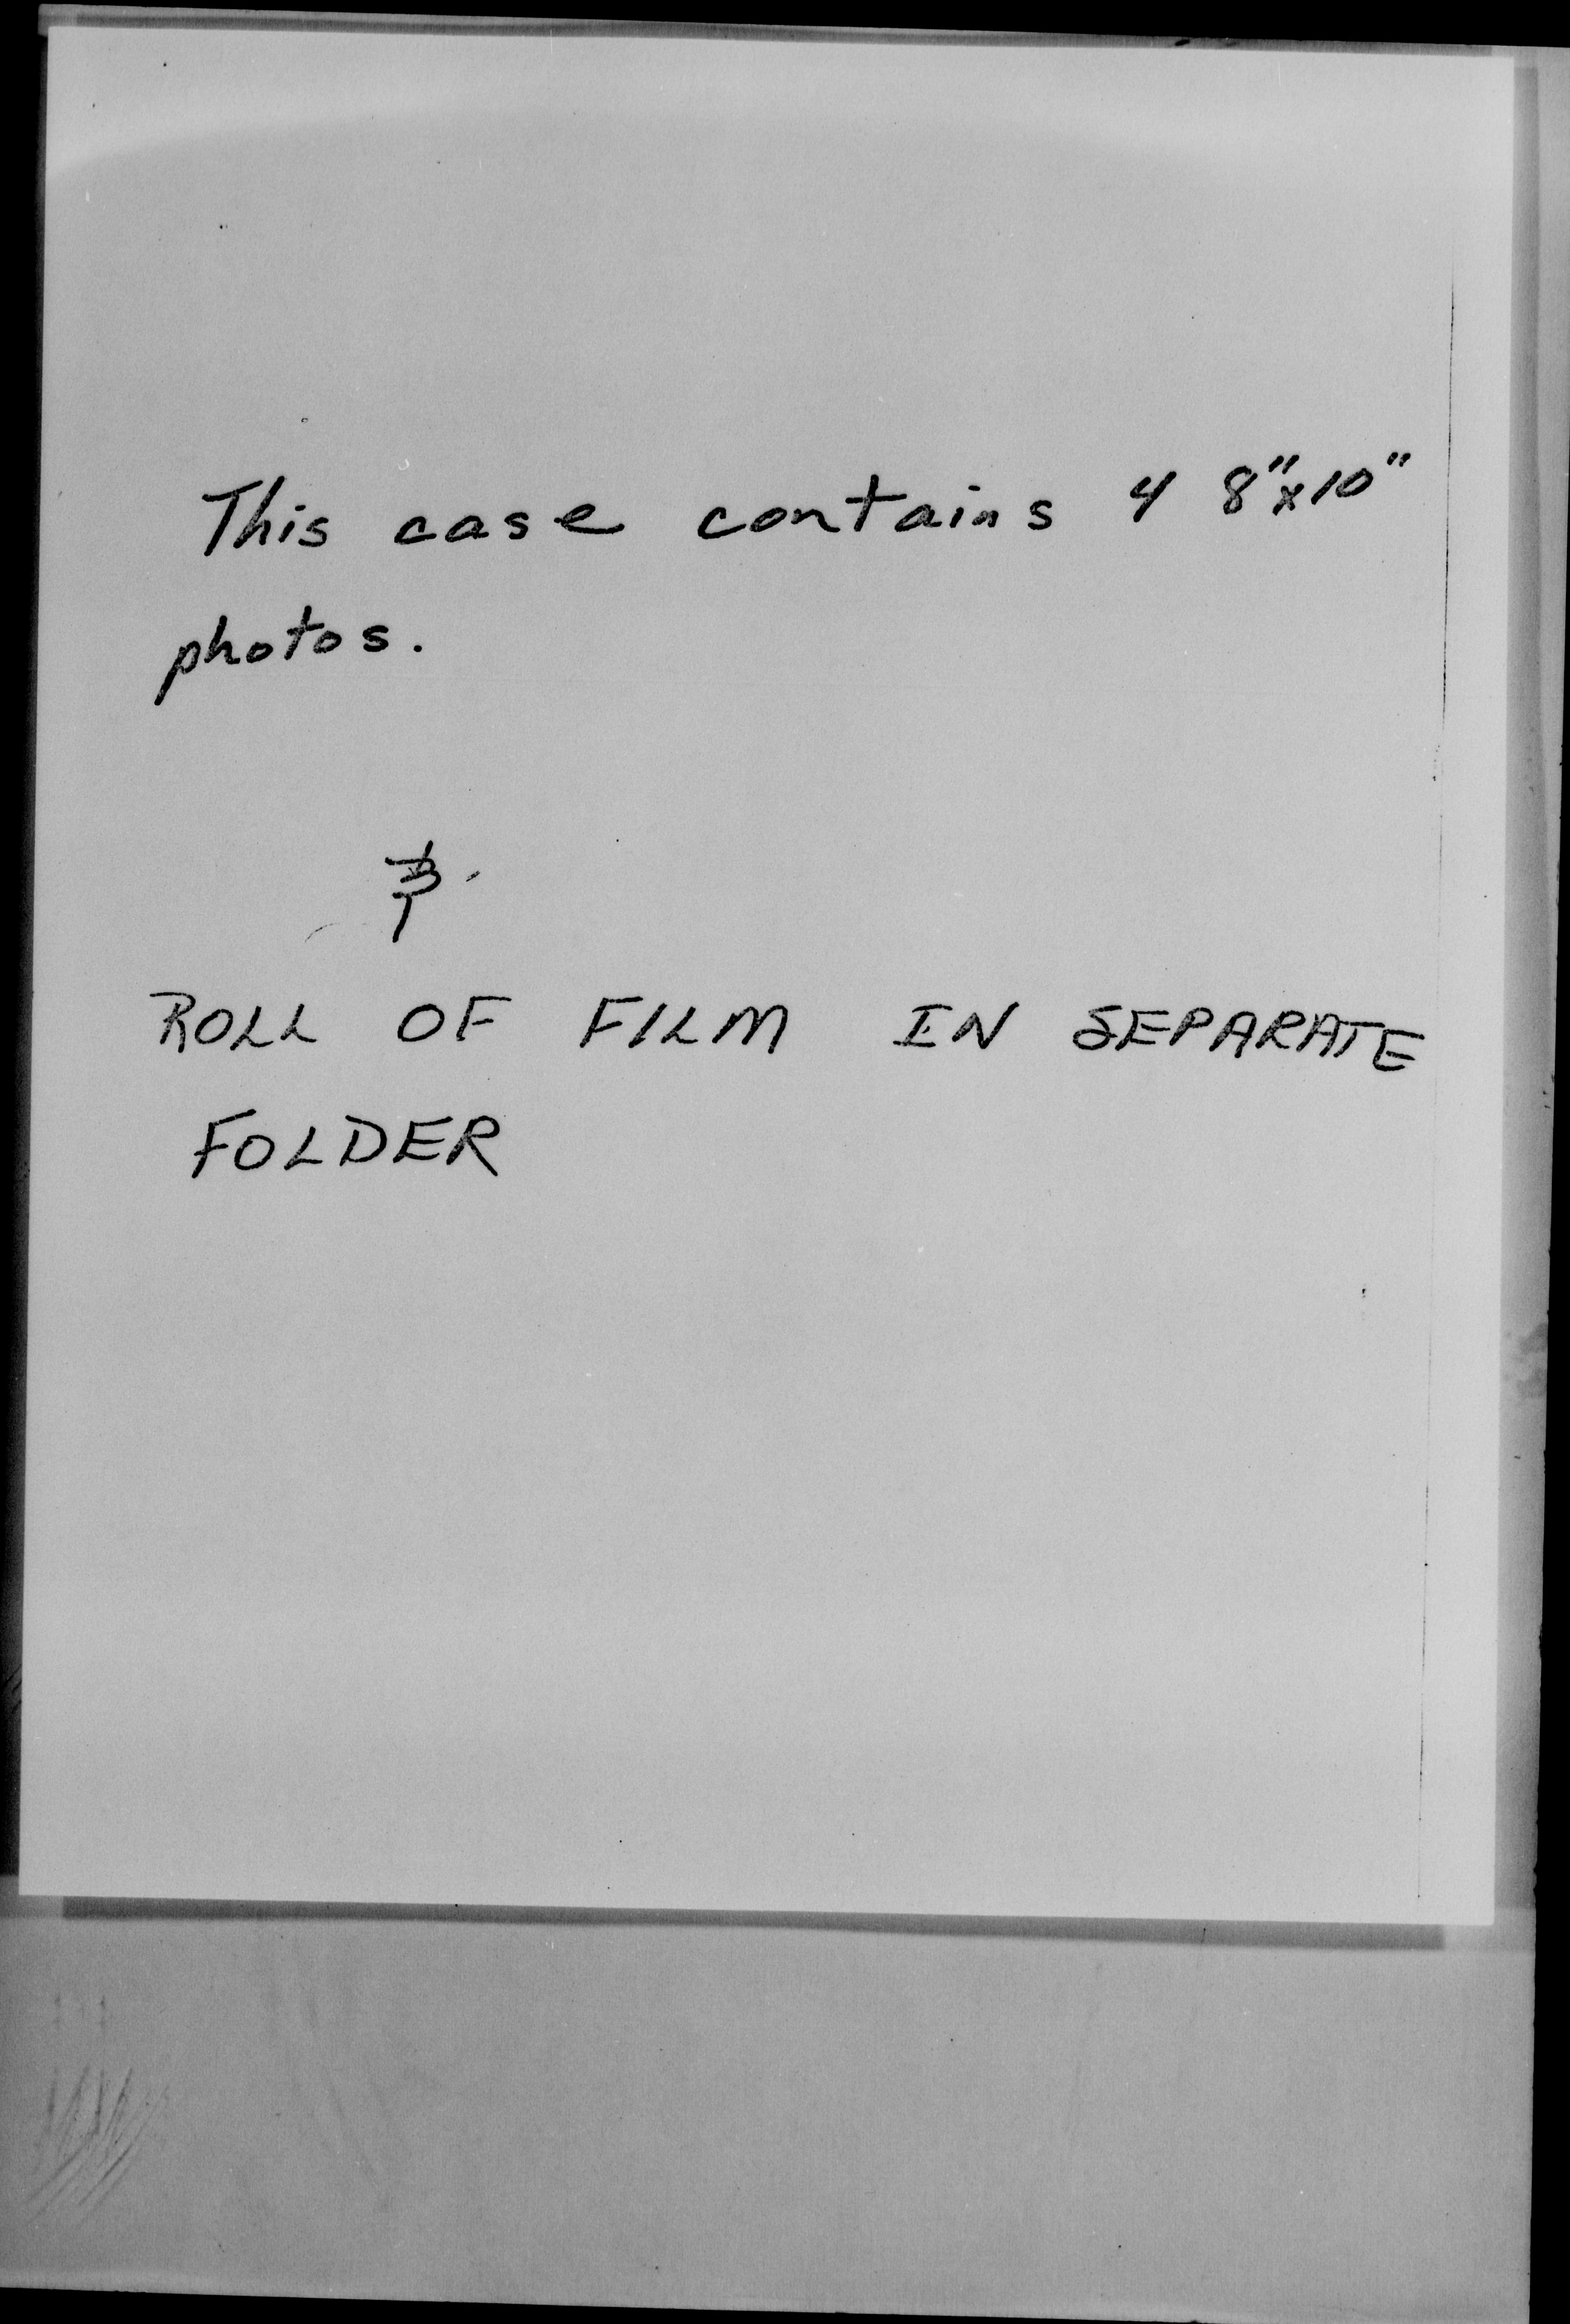 This case contains 4 8"x10"
photos.
&
ROLL OF FILM IN SEPARATE
FOLDER